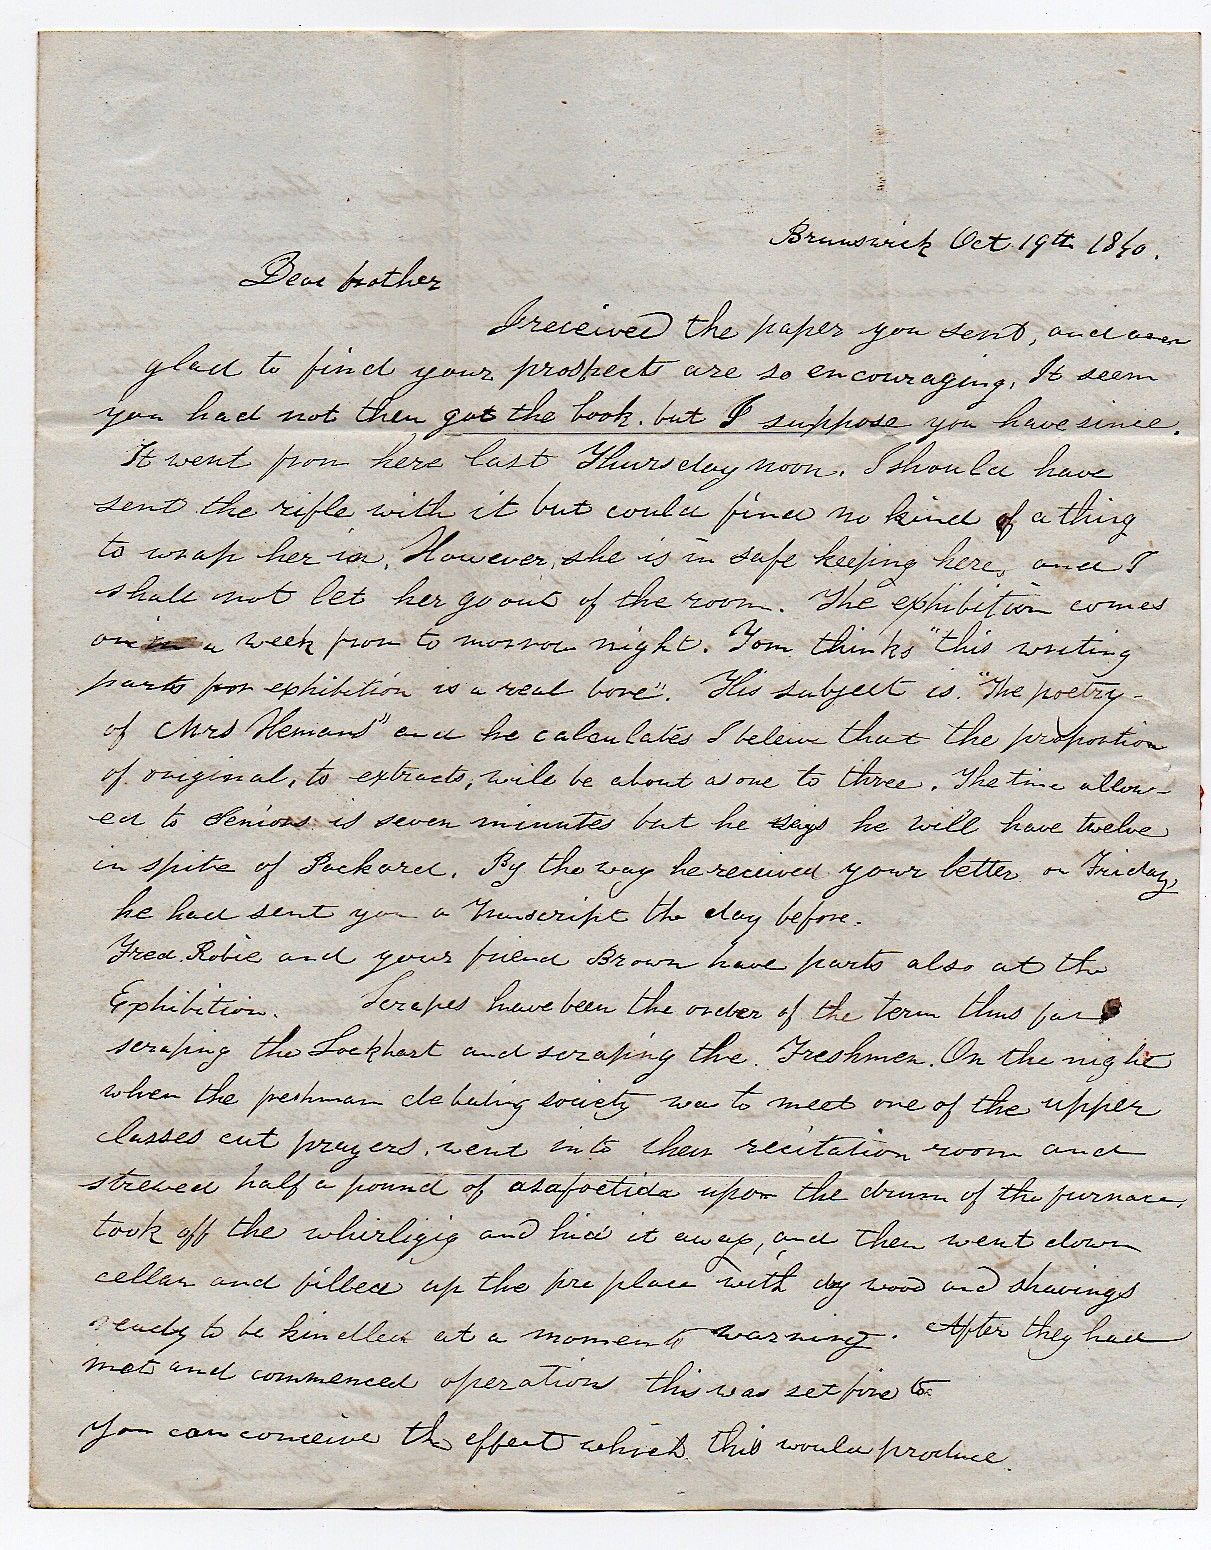 Brunswick Oct 19th 1840.
Dear brother
I received the paper you sent, and am
glad to find your prospects are so encouraging. It seem
you had not then got the book. but I suppose you have since.
It went from here last Thursday noon. I should have
sent the rifle with it but could find no kind of a thing
to wrap her in. However, she is in safe keeping here, and I
shall not let her go out of the room. The exhibition comes
on a week from to morrow night. Tom thinks "this writing
parts for exhibition is a real bore". His subject is. "The poetry
of Mrs Hemans" and he calculates I beleive that the proportion
of original, to extracts, will be about as one to three. The time allow-
ed to Seniors is seven minutes but he says he will have twelve
in spite of Packard. By the way he received your letter on Friday,
he had sent you a Transcript the day before.
Fred. Robie and your friend Brown have parts also at the
Exhibition. Scrapes have been the order of the term thus far
scraping the Lockhart and scraping the Freshmen. On the night
when the freshman debating society was to meet one of the upper
classes cut prayers, went into their recitation room and
strewed half a pound of asafoetida upon the drum of the furnace,
took off the whirligig and hid it away, and then went down
cellar and filled up the fire place with dry wood and shavings
ready to be kindled at a moments warning. After they had
met and commenced operations this was set fire to
You can conceive the effect which this would produce.